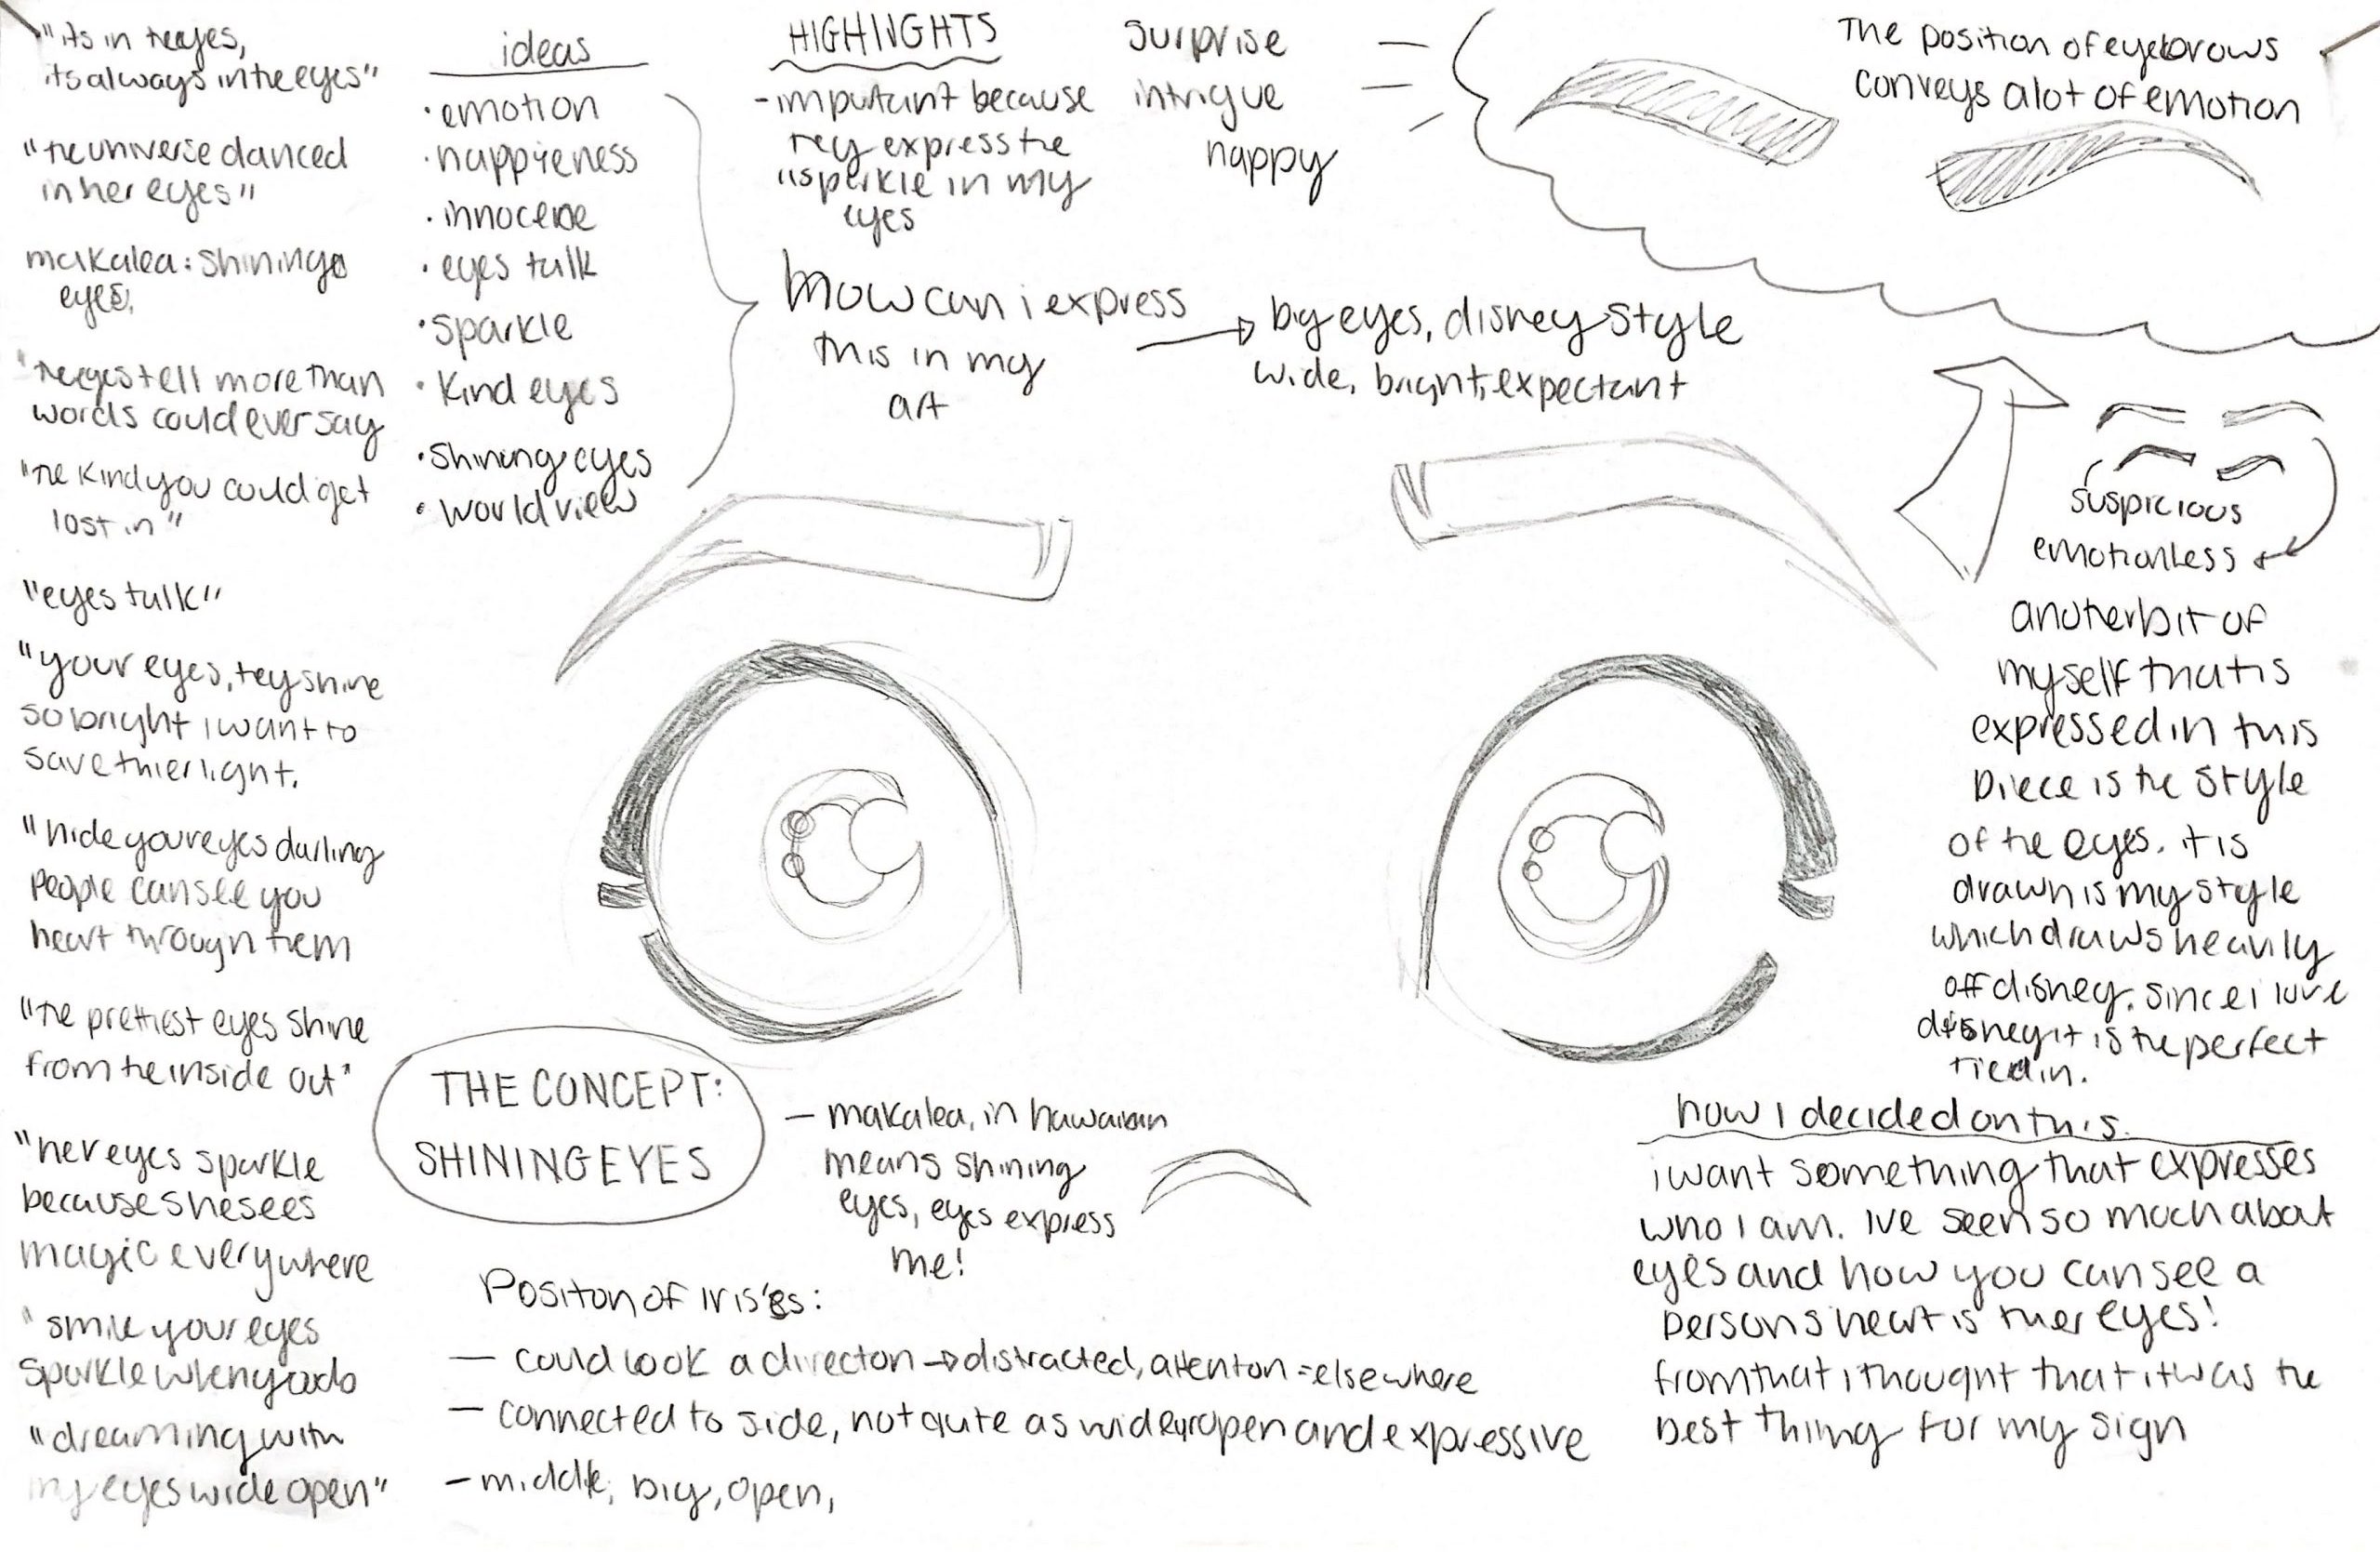 "its in the eyes,
its always in the eyes"
"the universe danced
in her eyes"
makalea: shining
eyes,
"the eyes tell more than
words could ever say
"the kind you could get
lost in"
"eyes talk"
"your eyes, they shine
so bright i want to
save thier light.
"hide your eyes darling
people can see you
heart through them
"the prettiest eyes shine
from the inside out"
"her eyes sparkle
because she sees
magic everywhere
"smile your eyes
sparkle when you do
"dreaming with
my eyes wide open"
ideas
· emotion
· happieness
· innocence
· eyes talk
· sparkle
· kind eyes
· shining eyes
· world view
HIGHLIGHTS
- important because
they express the
"sparkle in my
eyes
how can i express
this in my
art
big eyes, disney style
wide, bright, expectant
surprise
intrigue
happy
The position of eyebrows
conveys a lot of emotion
suspicious
emotionless
another bit of
myself that is
expressed in this
piece is the style
of the eyes. it is
drawn is my style
which draws heavily
off disney. since i love
disney it is the perfect
tied in.
THE CONCEPT:
SHINING EYES
- makalea, in hawaiian
means shining
eyes, eyes express
me!
Positon of iris'es:
- could look a directon → distracted, attenton = elsewhere
- connected to side, not quite as wide open and expressive
- middle, big, open,
how I decided on this.
i want something that expresses
who I am. Ive seen so much about
eyes and how you can see a
persons heart is ther eyes!
from that i thought that it was the
best thing for my sign